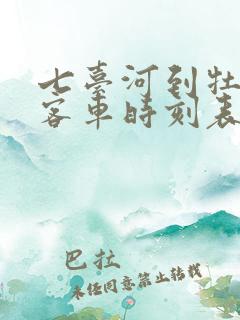 七臺河到牡
客車時刻表
巴拉
未經同意禁止轉載